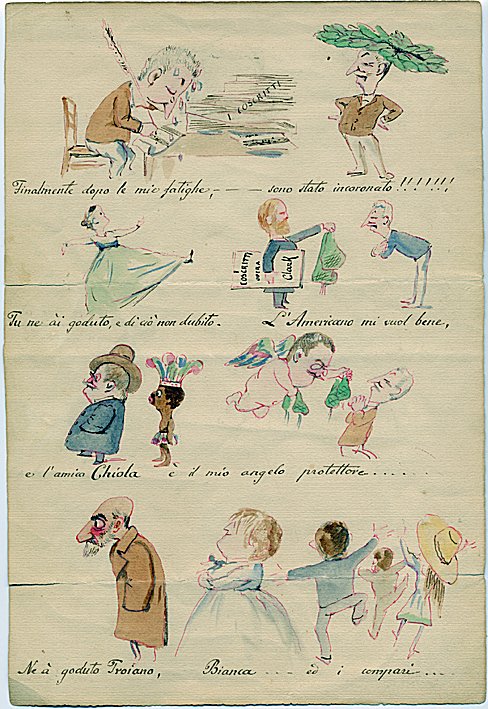 I COSCRITTI
Finalmente dopo le mie fatighe, — — — sono stato incoronato!!!!!!!
I
COSCRITTI
OPERA
Clark
Tu ne ài goduto, e di ciò non dubito. L'Americano mi vuol bene,
e l'amico Chiola è il mio angelo protettore . . . . . .
Ne à goduto Troiano, Bianca . . . — ed i compari . . . .